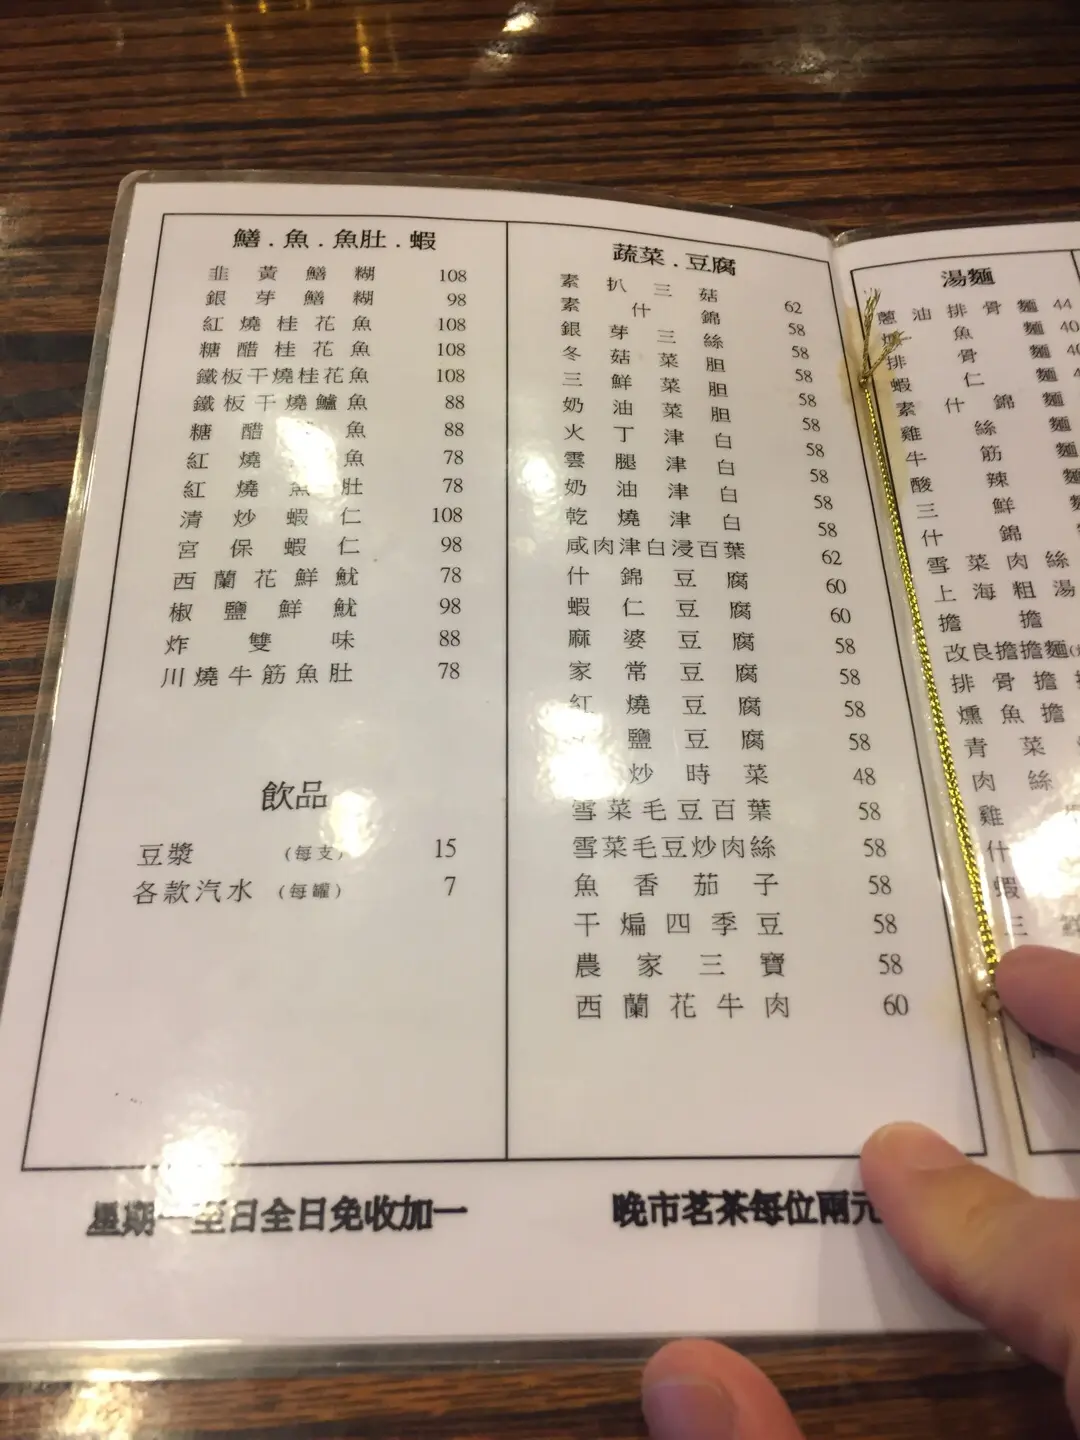 鱔.魚.魚肚.蝦
韮黃鱔糊 108
銀芽鱔糊 98
紅燒桂花魚 108
糖醋桂花魚 108
鐵板干燒桂花魚 108
鐵板干燒鱸魚 88
糖醋 魚 88
紅燒 魚 78
紅燒魚肚 78
清炒蝦仁 108
宮保蝦仁 98
西蘭花鮮魷 78
椒鹽鮮魷 98
炸雙味 88
川燒牛筋魚肚 78
飲品
豆漿 (每支) 15
各款汽水 (每罐) 7
蔬菜.豆腐
素扒三菇 62
素什錦 58
銀芽三絲 58
冬菇菜胆 58
三鮮菜胆 58
奶油菜胆 58
火丁津白 58
雲腿津白 58
奶油津白 58
乾燒津白 58
咸肉津白浸百葉 62
什錦豆腐 60
蝦仁豆腐 60
麻婆豆腐 58
家常豆腐 58
紅燒豆腐 58
鹽豆腐 58
炒時菜 48
雪菜毛豆百葉 58
雪菜毛豆炒肉絲 58
魚香茄子 58
干煸四季豆 58
農家三寶 58
西蘭花牛肉 60
湯麵
蔥油排骨麵 44
魚麵 40
排骨麵 40
蝦仁麵
素什錦麵
雞絲麵
牛筋麵
酸辣麵
三鮮
什錦
雪菜肉絲
上海粗湯
擔擔
改良擔擔麵
排骨擔
燻魚擔
青菜
肉絲
雞
什
蝦
三鮮
星期一至日全日免收加一
晚市茗茶每位兩元